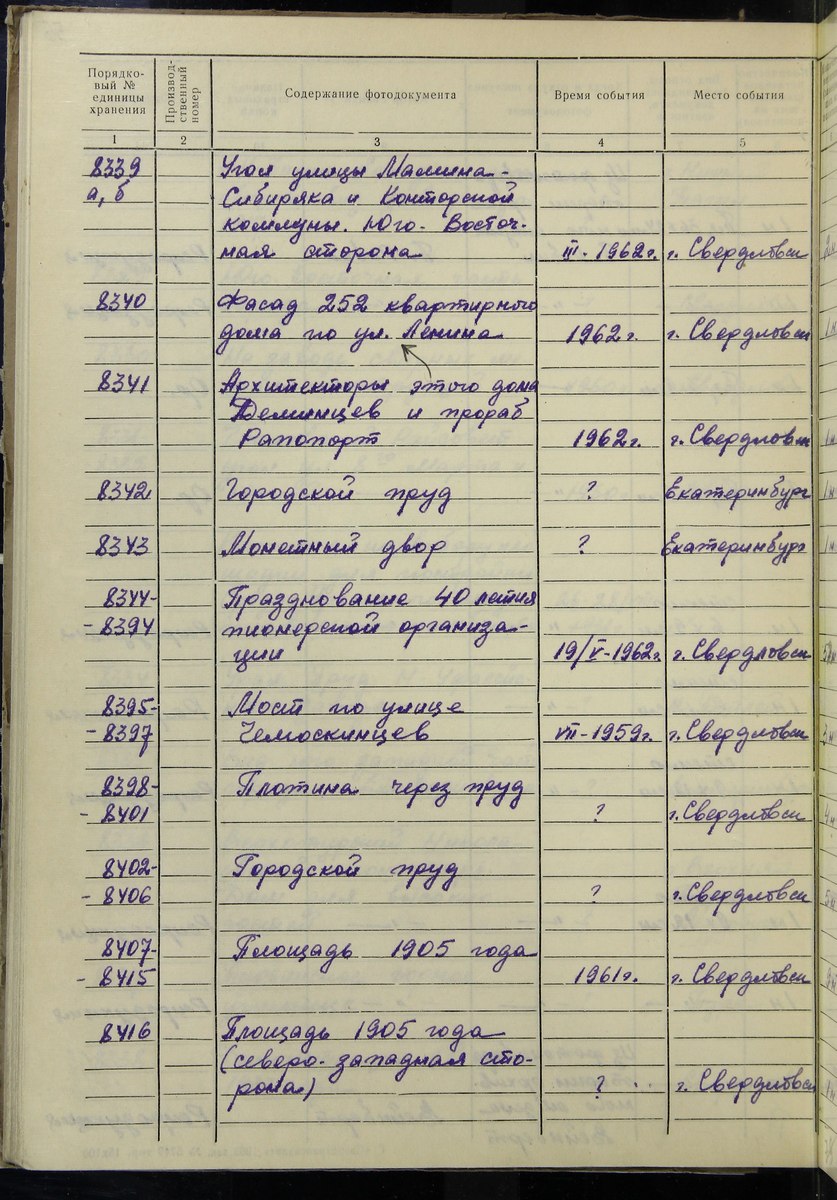 Порядко-
вый №
единицы
хранения
Производ-
ственный
номер
Содержание фотодокумента
Время события
Место события
1 2 3 4 5
8339 Угол улицы Мамина-
а, б Сибиряка и Конторской
коммуны. Юго-Восточ-
ная сторона III-1962г. г. Свердловск
8340 Фасад 252 квартирного
дома по ул. Ленина 1962г. г. Свердловск
8341 Архитекторы этого дома
Деминцев и прораб
Рапопорт 1962г. г. Свердловск
8342 Городской пруд ? Екатеринбург
8343 Монетный двор ? Екатеринбург
8344- Празднование 40 летия
-8394 пионерской организа-
ции 19/V-1962г. г. Свердловск
8395- Мост по улице
-8397 Челюскинцев VII-1959г. г. Свердловск
8398- Плотина через пруд
-8401 ? г. Свердловск
8402- Городской пруд
-8406 ? г. Свердловск
8407- Площадь 1905 года
-8415 1961г. г. Свердловск
8416 Площадь 1905 года
(северо-западная сто-
рона) ? г. Свердловск